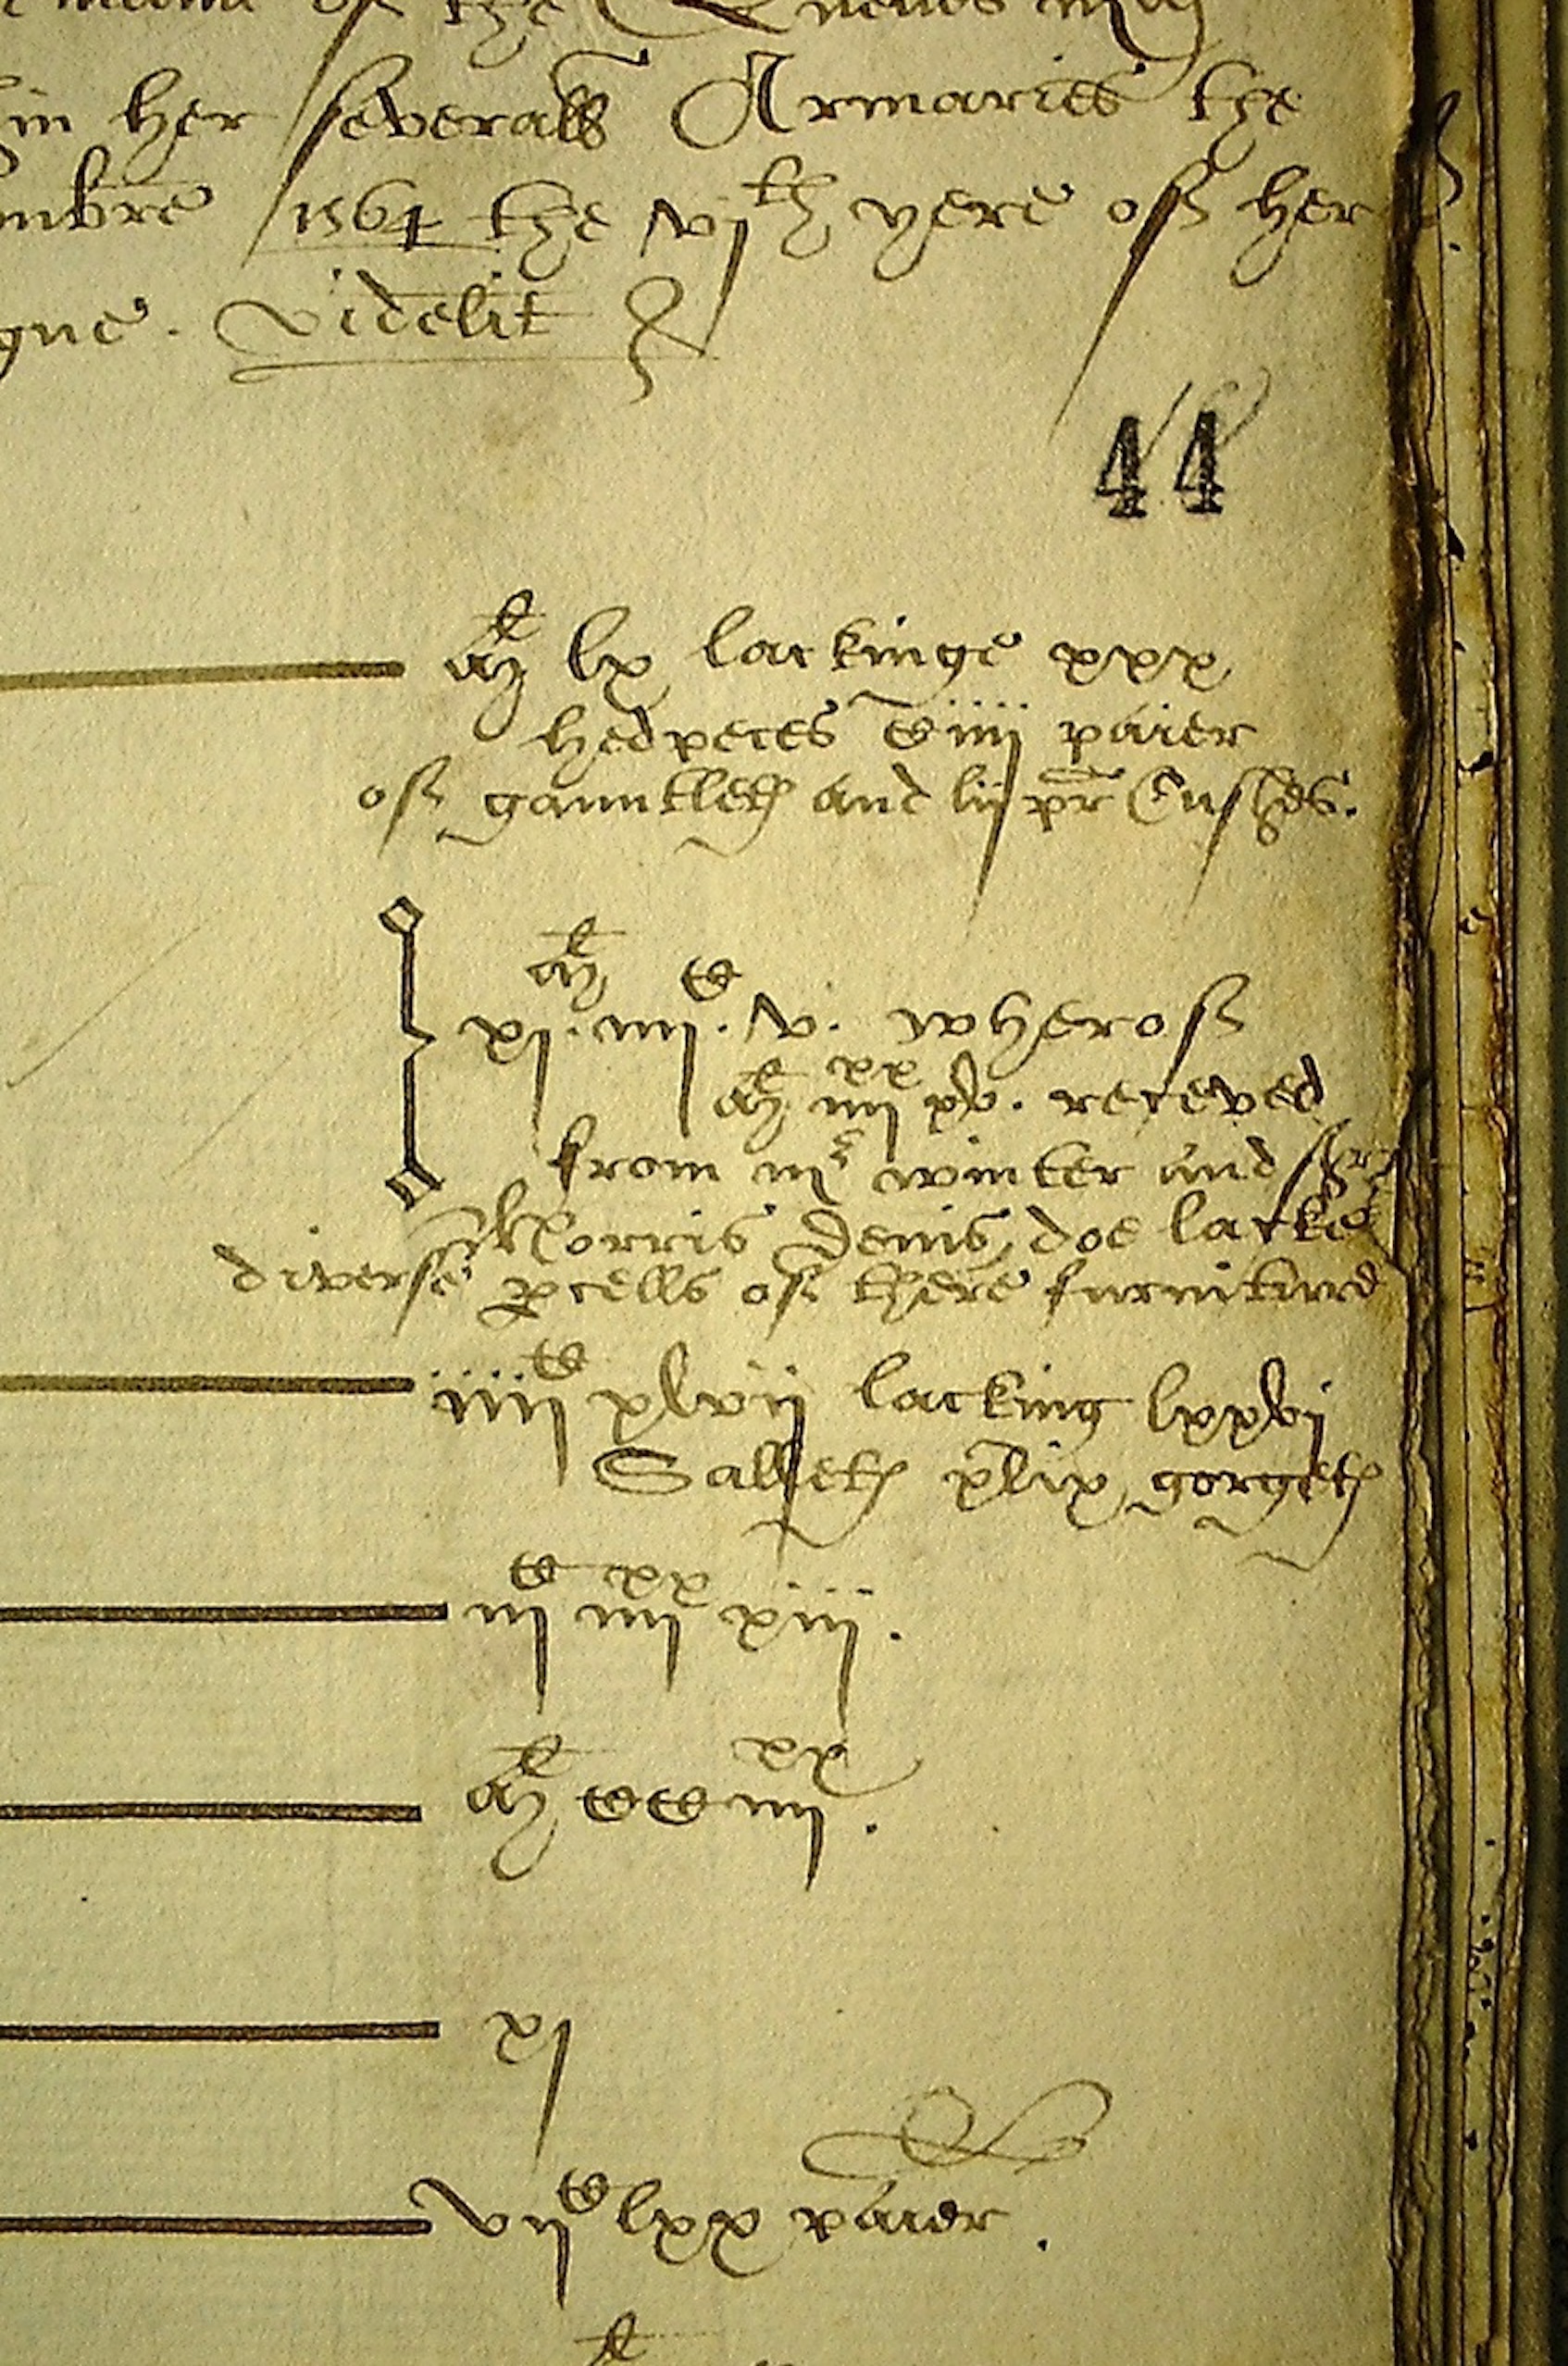 of the Quenes Ma
in her severall Armaries the
mbre 1564 the vjth yere of her
gne. videlit
44
Ml lx lackinge xxx
hedpeces Ciiij paier
of gauntletes and lij pr Cushes.
Ml C
xj. iiij. v. wherof
Ml iiijxx xv. receved
from mr winter and Sr
Morris Denis, doe lacke
diverse pcells of there furniturd
iiijC xlvij lacking lxxvj
Salletes xlix gorgetes
iijC iiijxx xiij.
Ml CC iiijxx.
xj
vijC lxx paier.